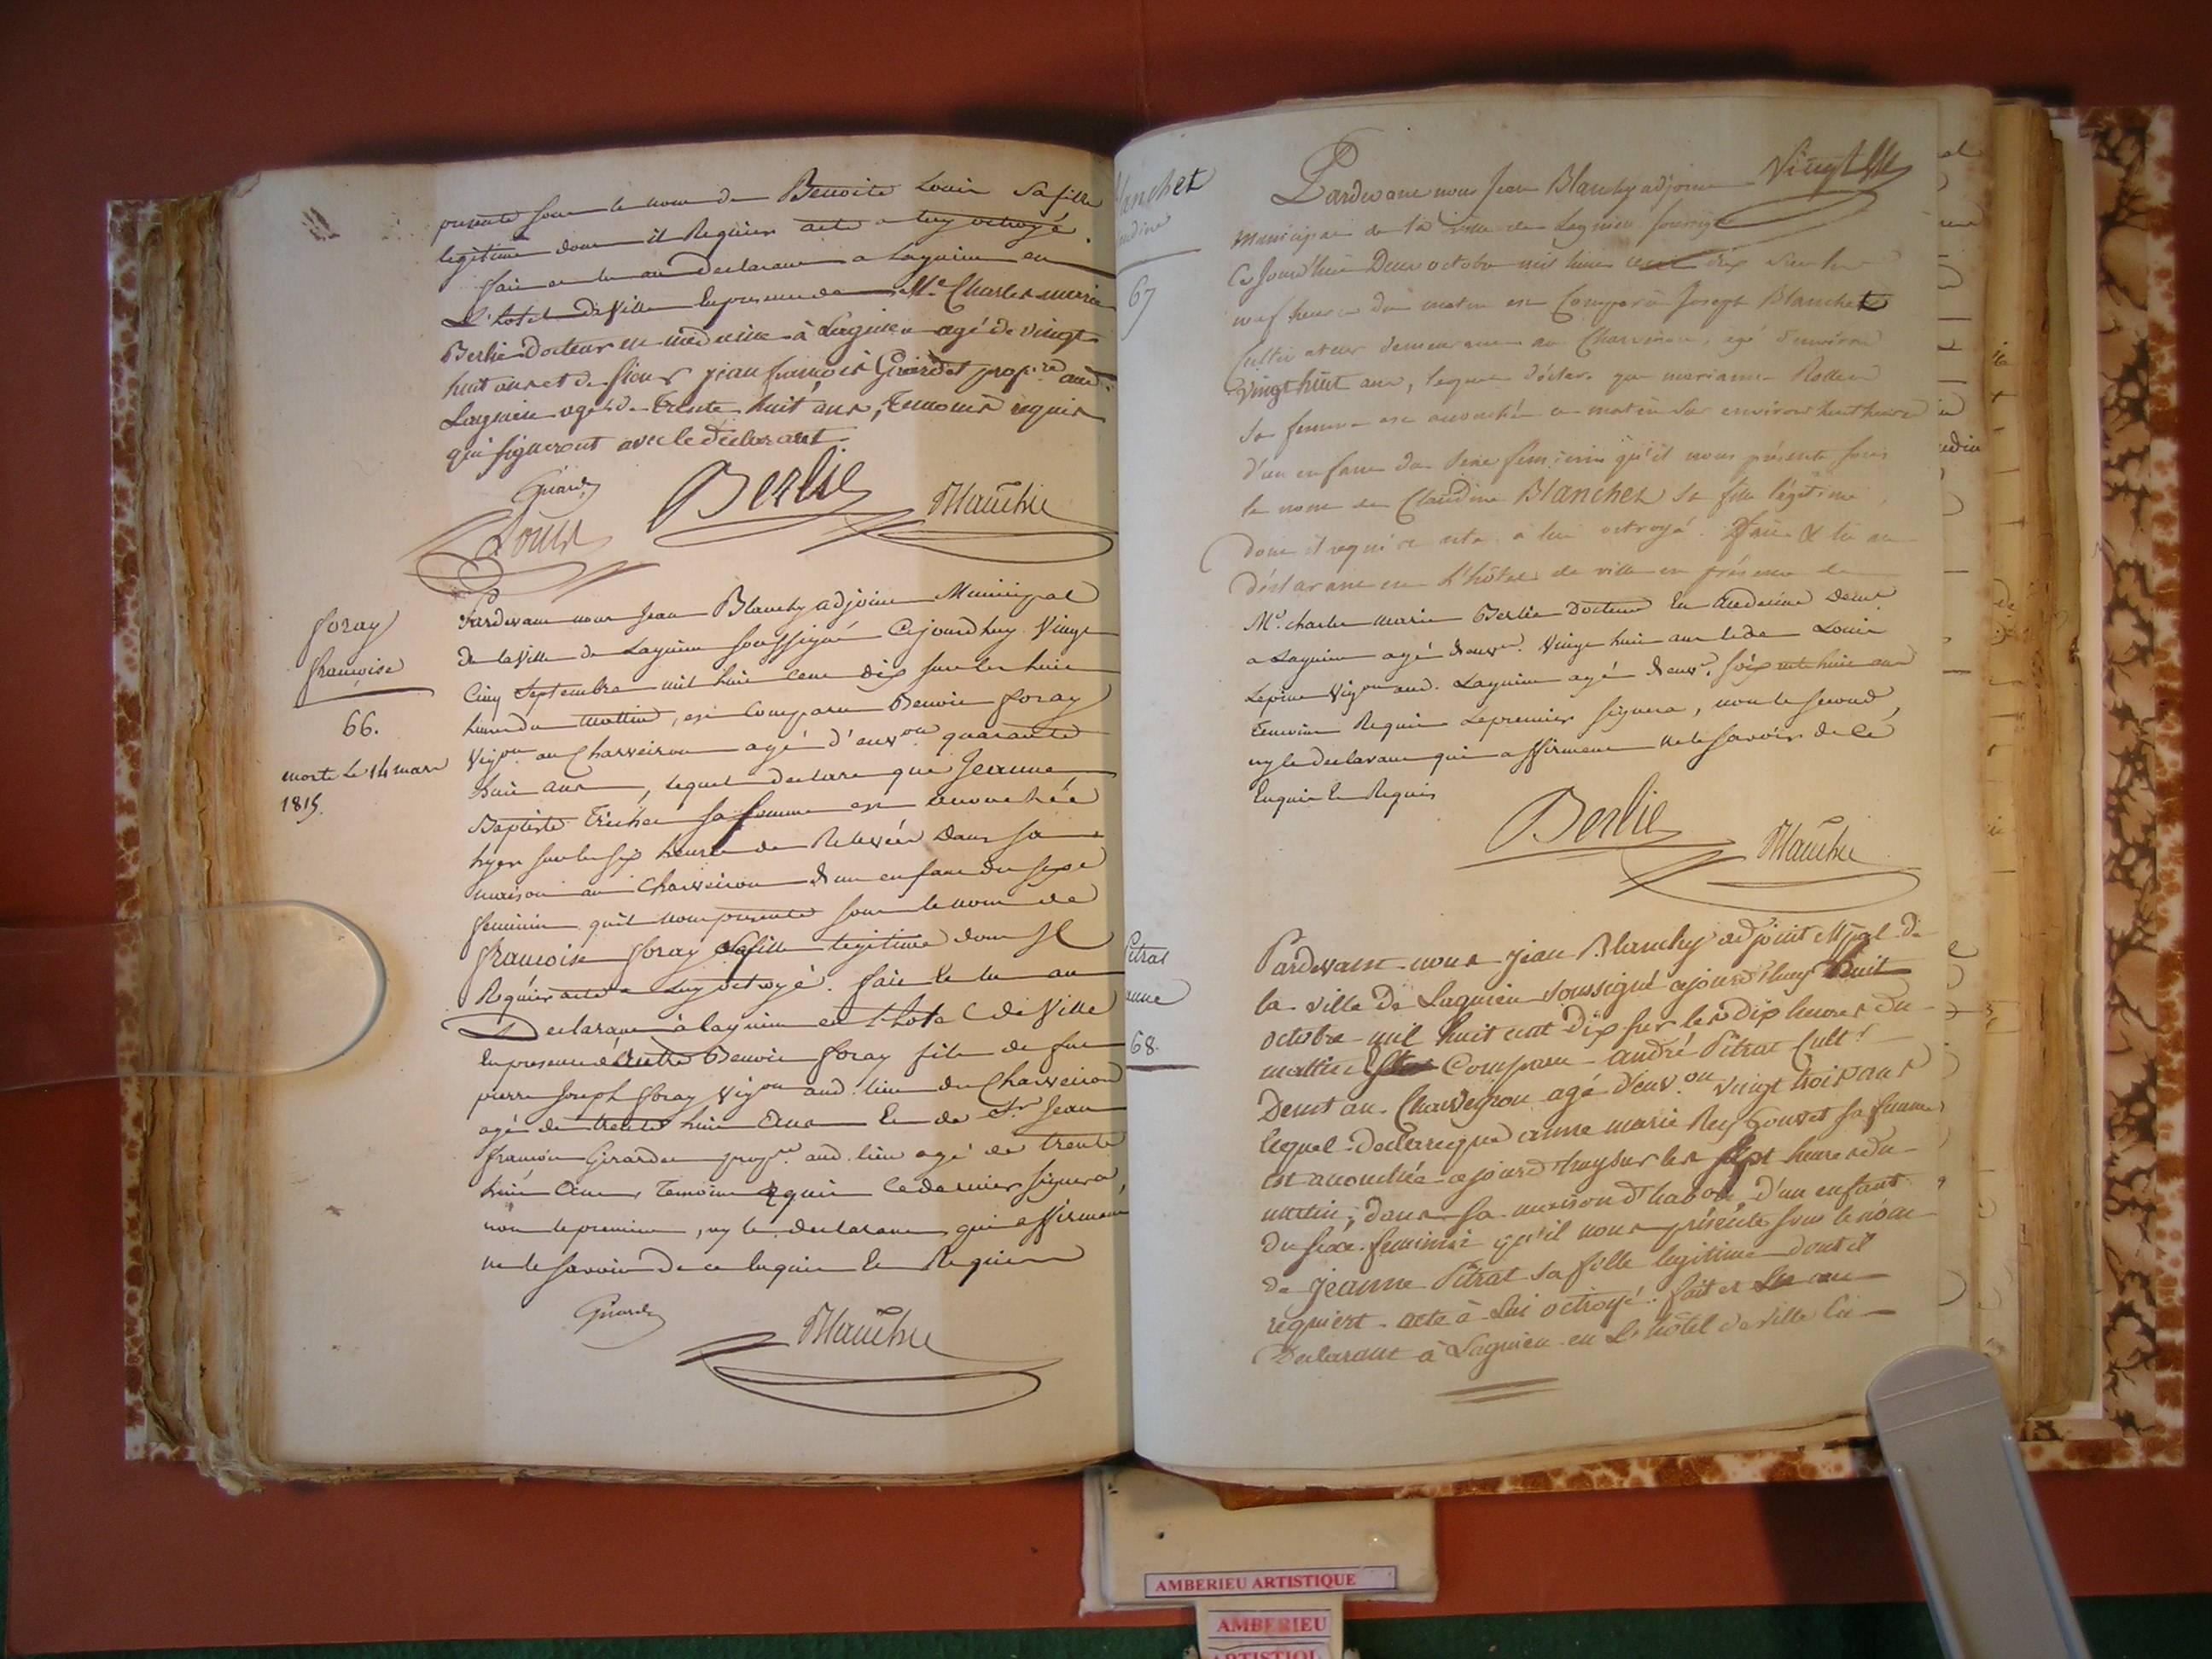 presenté sous le nom de Benoite Louis sa fille
legitime dont il Requier acte a luy octroyé.
fait et lu au declarant a Lagnieu en
L'hotel de Ville En presence de Mr. Charles marie
Berlie Docteur en medecine à Lagnieu agé de vingt
huit ans et de sieur jean françois Girardet prop.re aud.
Lagnieu agé de trente huit ans, Temoins requis
qui signeront avec le declarant.
Girardet
Louis Berlie Blanchy
foray
françoise
66.
morte Le 14 mars
1815.
Pardevant nous Jean Blanchy adjoint Municipal
de la Ville de Lagnieu soussigné Cejourdhuy Vingt
Cinq Septembre mil huit cent dix sur les huit
heures du mattin, est Comparu Benoit foray
Vigon au Charveiron agé d'envon quarante
huit ans, lequel declare que Jeanne
Baptiste sa femme est accouchée
hyer sur les six heures de Relevée dans sa
maison au Charveiron d'un enfant du sexe
feminin qu'il nous presente sous le nom de
françoise foray sa fille legitime dont Il
Requier acte a Luy octroyé. fait et lu au
Declarant à lagnieu en l'hotel de Ville
En presence de Benoit foray fils de feu
pierre Joseph foray Vigon aud. lieu du Charveiron
agé de trente huit ans et de Sr Jean
françois Girardet propre aud. lieu agé de trente
huit ans, Temoins requis Ce dernier signera,
non le premier, ny le declarant qui affirment
ne le savoir de ce Enquis et Requis
Girardet
Blanchy
Vingt
Blanchet
67
Pardevant nous Jean Blanchy adjoint
municipal de la ville de Lagnieu soussigné
Cejourd'hui Deux octobre mil huit cent dix sur les
neuf heures du matin est Comparu Joseph Blanchet
Cultivateur demeurant au Charveiron, agé d'environ
vingt huit ans, lequel déclare que marianne
sa femme est accouchée ce matin sur environ huit heures
d'un enfant du sexe feminin qu'il nous présente sous
le nom de Claudine Blanchet sa fille légitime
dont il requiert acte à lui octroyé. fait & lu au
déclarant en L'hôtel de ville en présence de
Mr. charles marie Berlie Docteur En medecine Demt.
a Lagnieu agé d'envn. Vingt huit ans et de Louis
Lepine Vigon aud. Lagnieu agé d'envn. soixante huit ans
Temoins Requis Le premier signera, non le second,
ny le declarant qui affirment ne le savoir de Ce
Enquis et Requis
Berlie
Blanchy
Pitrat
68.
Pardevant nous jean Blanchy adjoint Mpal De
la ville De Lagnieu soussigné cejourd'huy huit
octobre mil huit cent Dix sur les dix heures du
mattin Est Comparu andré Pitrat Cultr
Demt au Charveyron agé d'envon vingt trois ans
lequel Declare que anne marie Rey Gouvet sa femme
est accouchée cejourd'huy sur les sept heures du
mattin, dans sa maison d'habon, d'un enfant
Du sexe feminin qu'il nous présente sous le nom
de jeanne Pitrat sa fille legitime dont il
requiert acte à Lui octroyé. fait et Lu au
Declarant à Lagnieu en L'hôtel de Ville En
AMBERIEU ARTISTIQUE
AMBERIEU